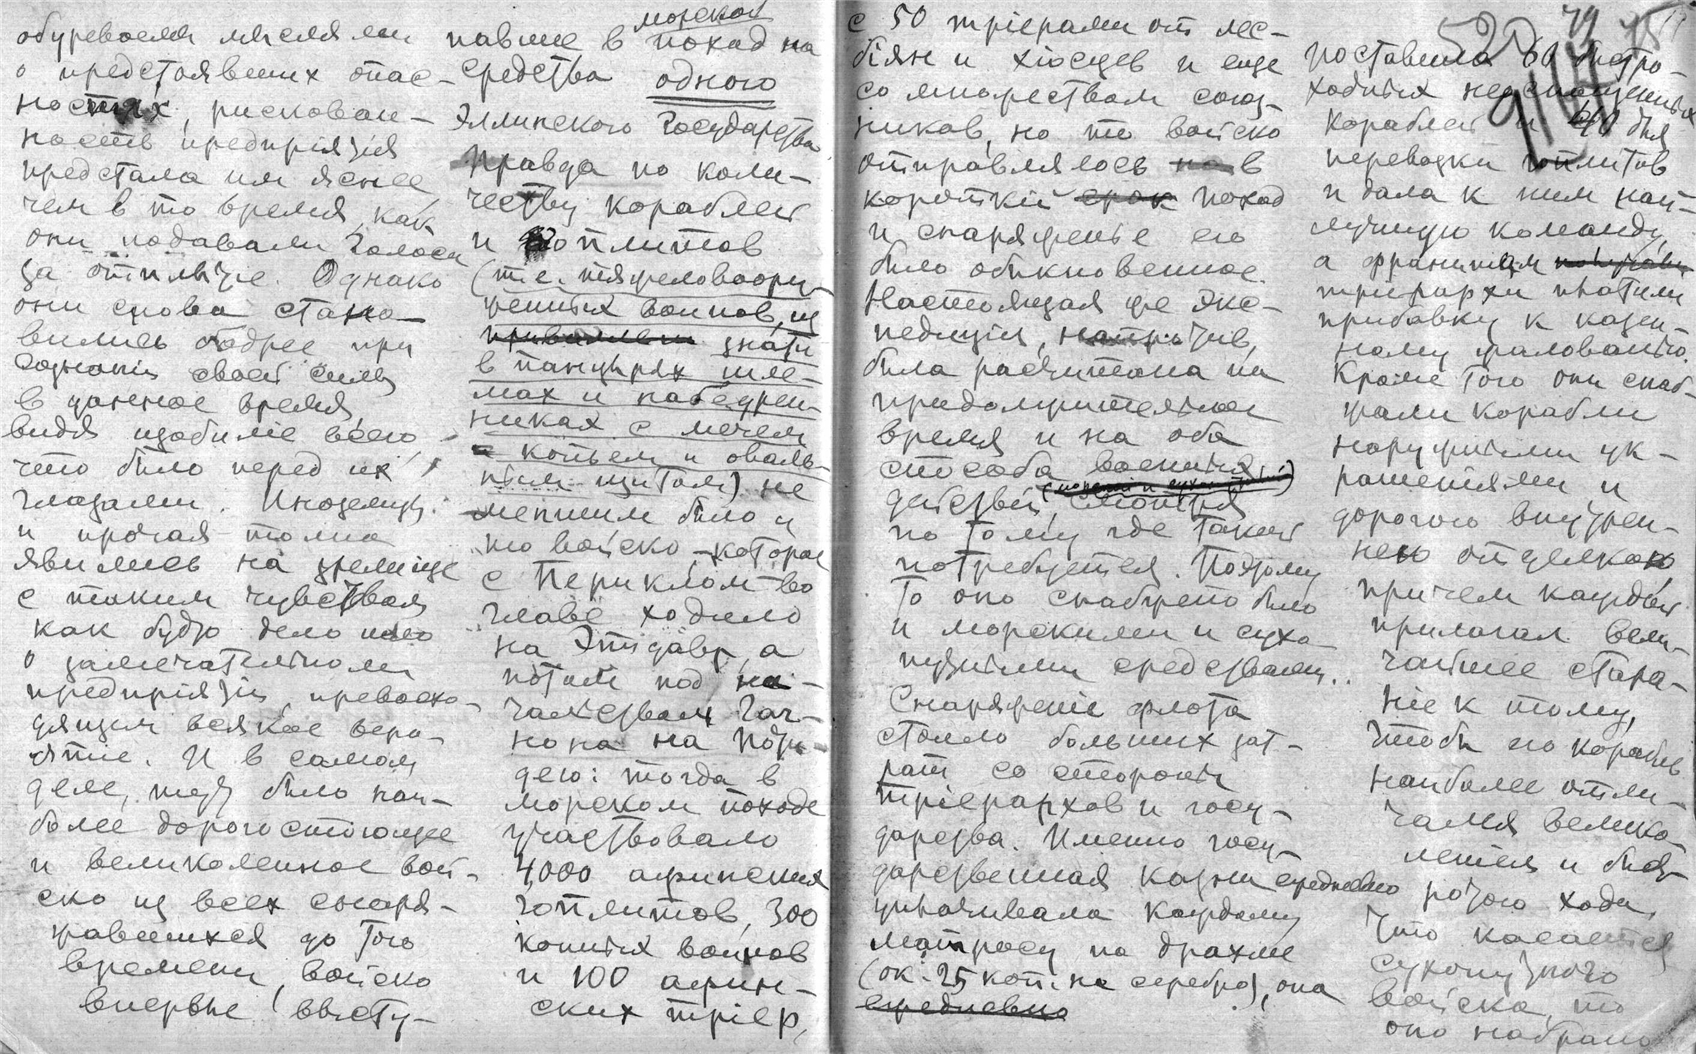 обуреваемы мыслями
о предстоявших опас-
ностях, рискован-
ность предпріятія
предстала им яснее,
чем в то время, как
они подавали голоса
за отплытіе. Однако
они снова стано-
вились бодрее при
сознаніи своей силы
в данное время,
видя изобиліе всего,
что было перед их
глазами. Иноземцы
и прочая толпа
явились на зрелище
с таким чувством
как будто дело шло
о замечательном
предпріятіи, превосхо-
дящем всякое веро-
ятіе. И в самом
деле, это было наи-
более дорогостоющее
и великолепное вой-
ско из всех снаря-
жавшихся до того
времени, войско
впервые высту-
павшее в морской поход на
средства одного
Эллинского Государства.
Правда по коли-
честву кораблей
и гоплитов
(т.е. тяжеловоору-
женных воинов, из
знати
в панцырях шле-
мах и набедрен-
никах с мечем
копьем и оваль-
ным щитом) не
меньшим было и
то войско, которое
с Периклом во
главе ходило
на Эпидавр, а
потом под на-
чальством Гаг-
нона на Поти-
дею: тогда в
морском походе
участвовало
4,000 афинских
гоплитов, 300
конных воинов
и 100 афин-
ских тріер,
с 50 тріерами от лес-
біян и хіосцев и еще
со множеством союз-
ников, но то войско
отправлялось в
короткій срок поход
и снаряженье его
было обыкновенное.
Настоящая же экс-
педиція, напротив,
была расчитана на
продолжительное
время и на оба
способа военных
действій, (морской и сухопутный) смотря
по тому где таких
потребуется. Поэтому
то оно снабжено было
и морскими и сухо
путными средствами..
Снаряженіе флота
стоило больших зат-
рат со стороны
тріерархов и госу-
дарства. Именно госу-
дарственная казна ежедневно
уплачивала каждому
матросу по драхме
(ок. 25 коп. на серебро), она
ежедневно
520 79 75
поставила 60 быстро-
ходных неоснащенных
кораблей и 40 для
перевозки гоплитов
и дала к ним наи-
лучшую команду,
а
тріерархи платили
прибавку к казен-
ному жалованью.
Кроме того они снаб-
жали корабли
наружными ук-
рашеніями и
дорогою внутрен-
нею отделкою,
причем каждый
прилагал вели-
чайшее стара-
ніе к тому,
чтобы его корабль
наиболее отли-
чался велико-
лепіем и быст-
ротою хода.
Что касается
сухопутного
войска, то
оно набрано